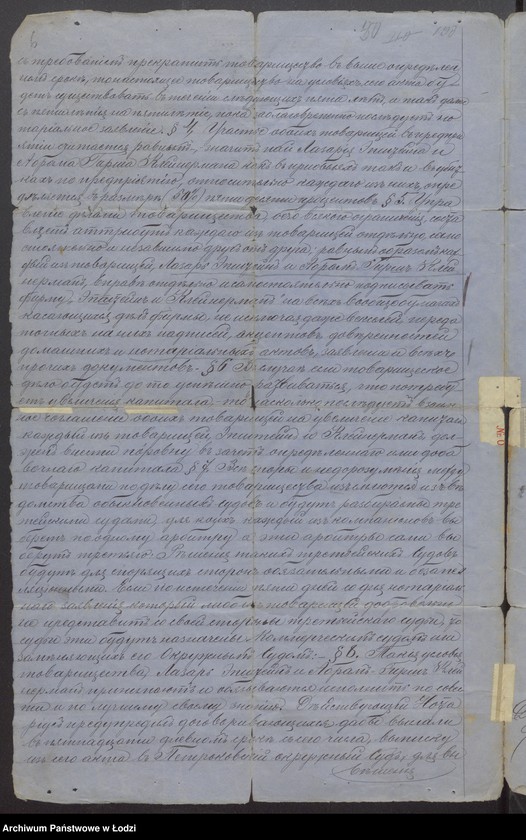 6
съ требованіемъ прекратить товарищество въ вышеопредѣлен
ный срокъ, то настоящее товарищество на условіяхъ сего акта бу
детъ существовать въ теченіи слѣдующихъ пяти лѣтъ, и такъ далѣе
съ пятилѣтія на пятилѣтіе, пока не своевременно послѣдуетъ но
таріальное заявленіе. § 4. Участіе обоихъ товарищей въ предпрі
ятіи считается равнымъ, значитъ пай Лазаря Эпштейна и
Абрама Гирша Клейнермана какъ въ прибыляхъ такъ и въ убыт
кахъ по предпріятію, относительно каждаго изъ нихъ, опре
дѣляется въ размѣрѣ 50% пятидесяти процентовъ § 5. Упра
вленіе дѣлами товарищества, безо всякого ограниченія, соста
вляетъ аттрибутъ каждаго изъ товарищей отдѣльно, само
стоятельно и независимо другъ отъ друга; равнымъ образомъ каж
дый изъ товарищей, Лазарь Эпштейнъ и Абрамъ Гиршъ Клей
нерманъ, вправѣ отдѣльно и самостоятельно подписывать
фирму "Эпштейнъ и Клейнерманъ" на всѣхъ вообще бумагахъ
касающихся дѣлъ фирмы, не исключая даже векселей, переда
точныхъ на нихъ надписей, акцептовъ, довѣренностей
домашнихъ и нотаріальныхъ актовъ, заявленій и всякихъ
прочихъ документовъ. § 6 Въ случаѣ если товарищеское
дѣло будетъ до того успѣшно развиваться, что потребу
етъ увеличенія капитала то поскольку послѣдуетъ взаим
ное соглашеніе обоихъ товарищей на увеличеніе капитала
каждый изъ товарищей, Эпштейнъ и Клейнерманъ дол
женъ внести поровну въ зачетъ опредѣленнаго ими доба
вочнаго капитала § 7. Всѣ споры и недоразумѣнія между
товарищами по дѣлу сего товарищества изъемлются изъ вѣ
домства обыкновенныхъ судовъ и будутъ разбираемы тре
тейскими судьями, для коихъ каждый изъ компаніоновъ вы
беретъ по одному арбитру а эти арбитры сами вы
берутъ третьяго. Рѣшенія такихъ третейскихъ судовъ
будутъ для спорящихъ сторонъ обязательными и безапел
ляціонными. Если по истеченіи пяти дней со дня нотаріаль
наго заявленія который либо изъ товарищей добровольно
не представитъ со своей стороны третейскаго судьи, то
судьи эти будутъ назначены Коммерческимъ судомъ или
замѣняющимъ его Окружнымъ Судомъ. – § 8. Такія условія
товарищества, Лазарь Эпштейнъ и Абрамъ Гиршъ Клей
нерманъ принимаютъ и обязываются исполнить по совѣ
сти и по лучшему своему знанію. Дѣйствующій Нота
ріусъ предупредилъ договаривающихся, дабы выслали
въ пятнадцати дневный срокъ сего числа, выписку
изъ сего акта въ Петроковскій окружный Судъ, для вы
Archiwum Państwowe w Łodzi